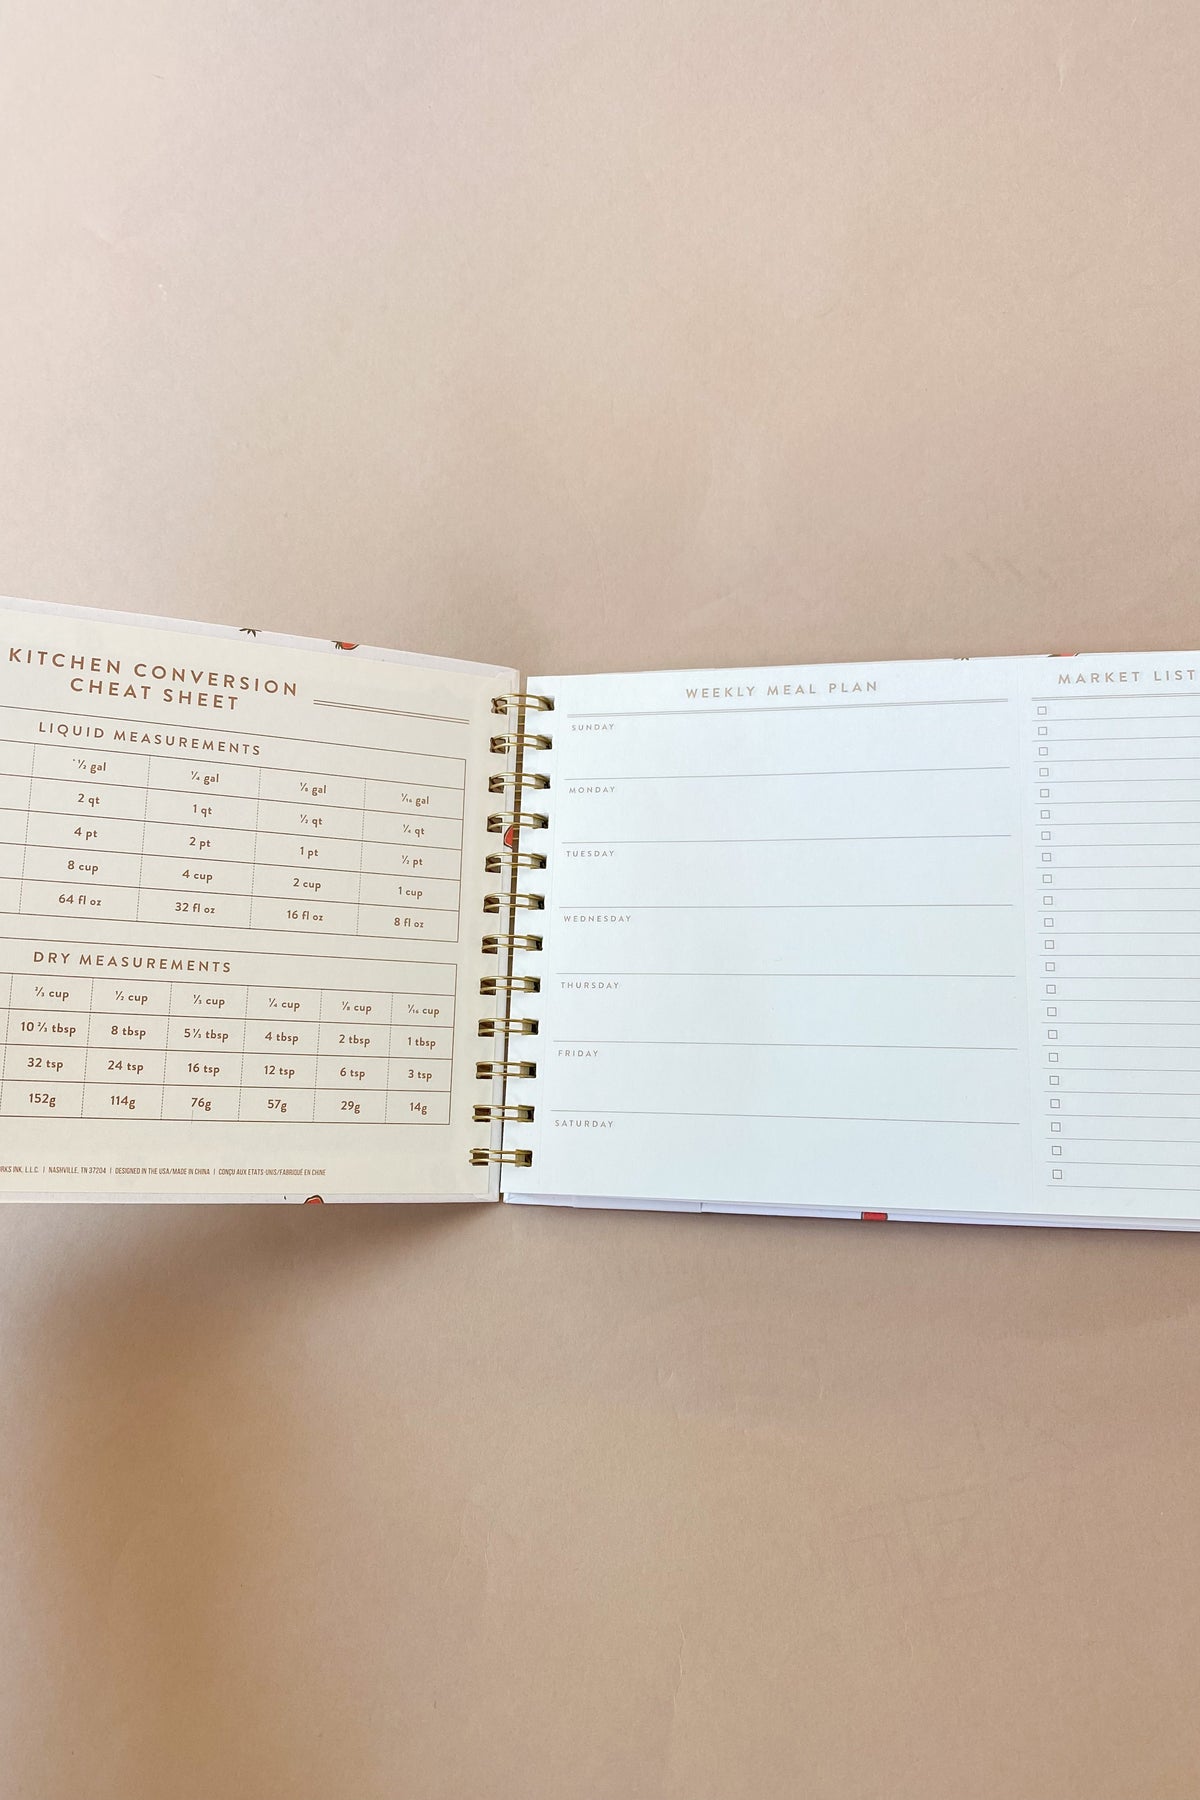 KITCHEN CONVERSION
CHEAT SHEET
LIQUID MEASUREMENTS
½ gal ¼ gal ⅛ gal ¹⁄₁₆ gal
2 qt 1 qt ½ qt ¼ qt
4 pt 2 pt 1 pt ½ pt
8 cup 4 cup 2 cup 1 cup
64 fl oz 32 fl oz 16 fl oz 8 fl oz
DRY MEASUREMENTS
⅔ cup ½ cup ⅓ cup ¼ cup ⅛ cup ¹⁄₁₆ cup
10 ⅔ tbsp 8 tbsp 5 ⅓ tbsp 4 tbsp 2 tbsp 1 tbsp
32 tsp 24 tsp 16 tsp 12 tsp 6 tsp 3 tsp
152g 114g 76g 57g 29g 14g
RKS INK, L.L.C. | NASHVILLE, TN 37204 | DESIGNED IN THE USA/MADE IN CHINA | CONÇU AUX ETATS-UNIS/FABRIQUÉ EN CHINE
WEEKLY MEAL PLAN
SUNDAY
MONDAY
TUESDAY
WEDNESDAY
THURSDAY
FRIDAY
SATURDAY
MARKET LIST